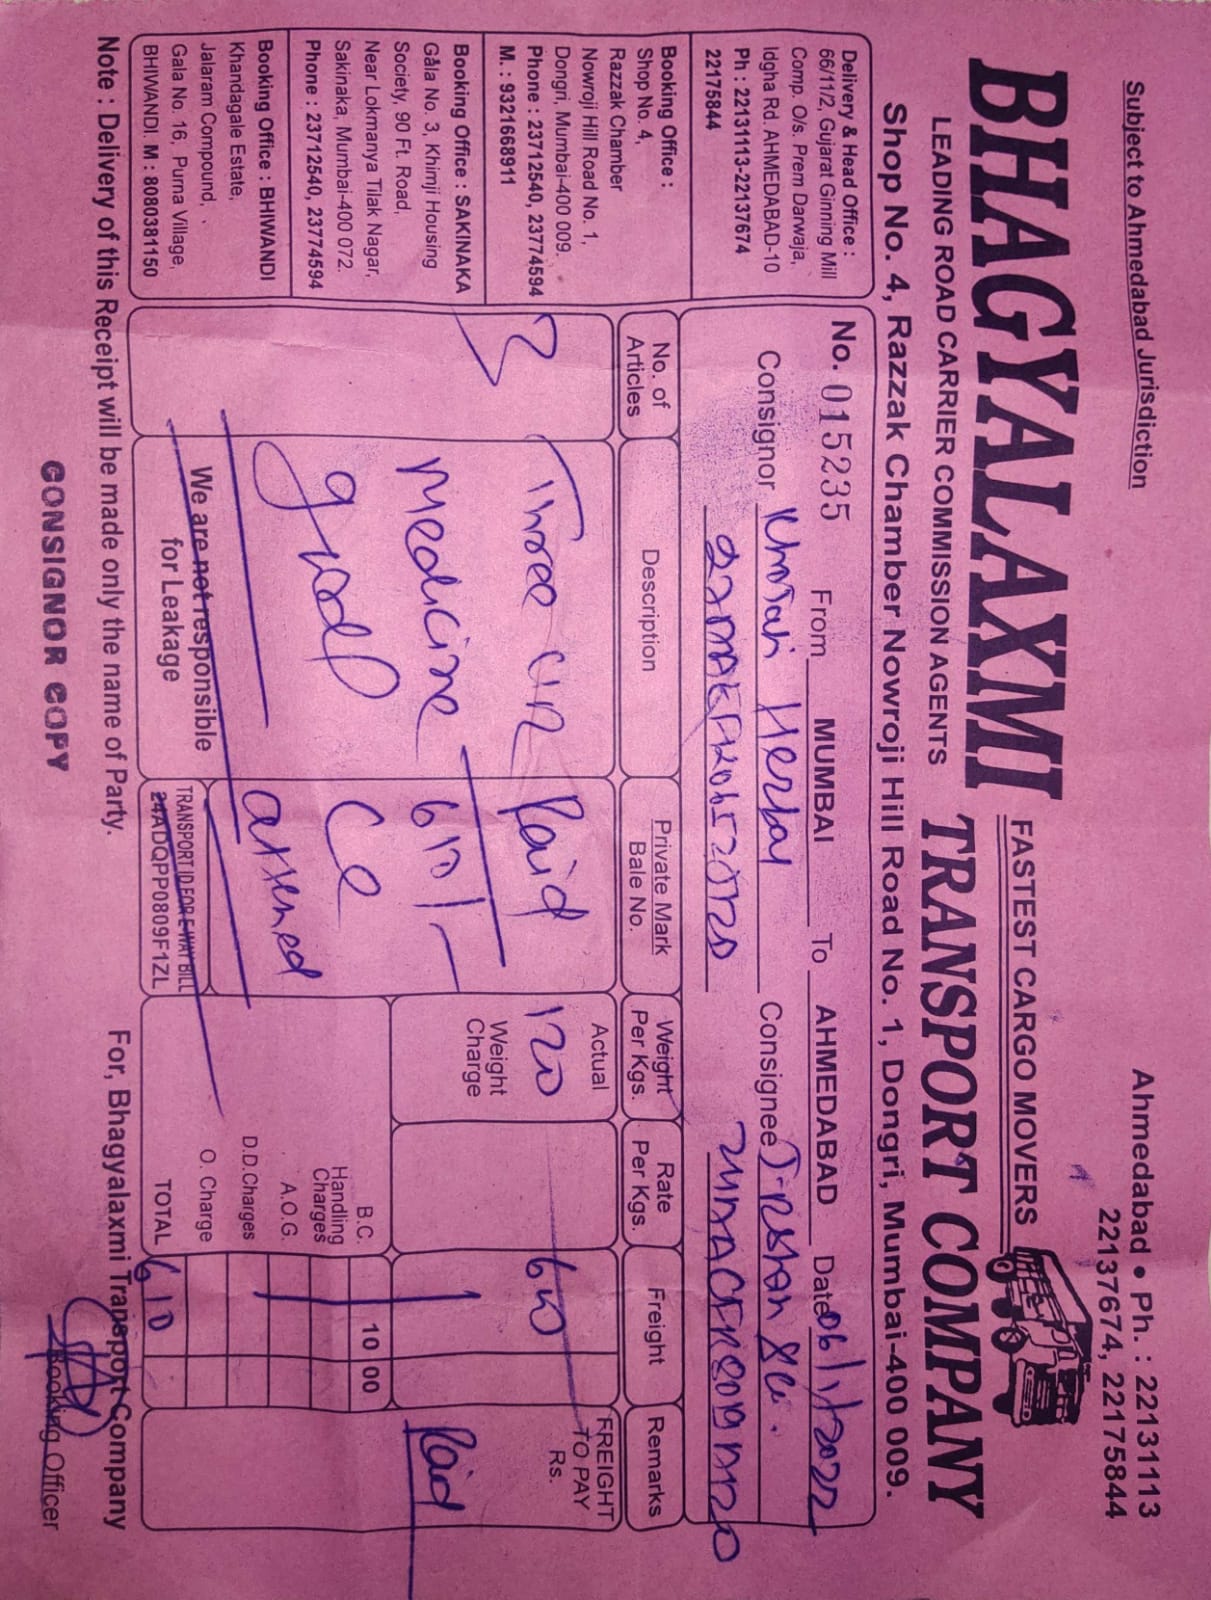 Subject to Ahmedabad Jurisdiction
Ahmedabad • Ph. : 22131113
22137674, 22175844
BHAGYALAXMI
FASTEST CARGO MOVERS
LEADING ROAD CARRIER COMMISSION AGENTS
TRANSPORT COMPANY
Shop No. 4, Razzak Chamber Nowroji Hill Road No. 1, Dongri, Mumbai-400 009.
Delivery & Head Office :
66/11/2, Gujarat Ginning Mill
Comp. O/s. Prem Darwaja,
Idgha Rd. AHMEDABAD-10
Ph : 22131113-22137674
22175844
Booking Office :
Shop No. 4,
Razzak Chamber
Nowroji Hill Road No. 1,
Dongri, Mumbai-400 009.
Phone : 23712540, 23774594
M. : 9321668911
Booking Office : SAKINAKA
Gala No. 3, Khimji Housing
Society, 90 Ft. Road,
Near Lokmanya Tilak Nagar,
Sakinaka, Mumbai-400 072.
Phone : 23712540, 23774594
Booking Office : BHIWANDI
Khandagale Estate,
Jalaram Compound,
Gala No. 16, Purna Village,
BHIWANDI. M : 8080381150
No. 015235 From MUMBAI To AHMEDABAD Date 06/1/2022
Consignor Herbal Consignee
No. of Articles
Description
Private Mark
Bale No.
Weight Per Kgs.
Rate Per Kgs.
Freight
Remarks
3
Three
medicine
good
We are not responsible
for Leakage
Paid
610/-
TRANSPORT ID FOR E-WAY BILL
24ADQPP0809F1ZL
Actual
120
Weight Charge
600
FREIGHT
TO PAY
Rs.
Paid
B.C. 10 00
Handling Charges
A.O.G.
D.D.Charges
O. Charge
TOTAL 610
Note : Delivery of this Receipt will be made only the name of Party.
For, Bhagyalaxmi Transport Company
CONSIGNOR COPY
Booking Officer